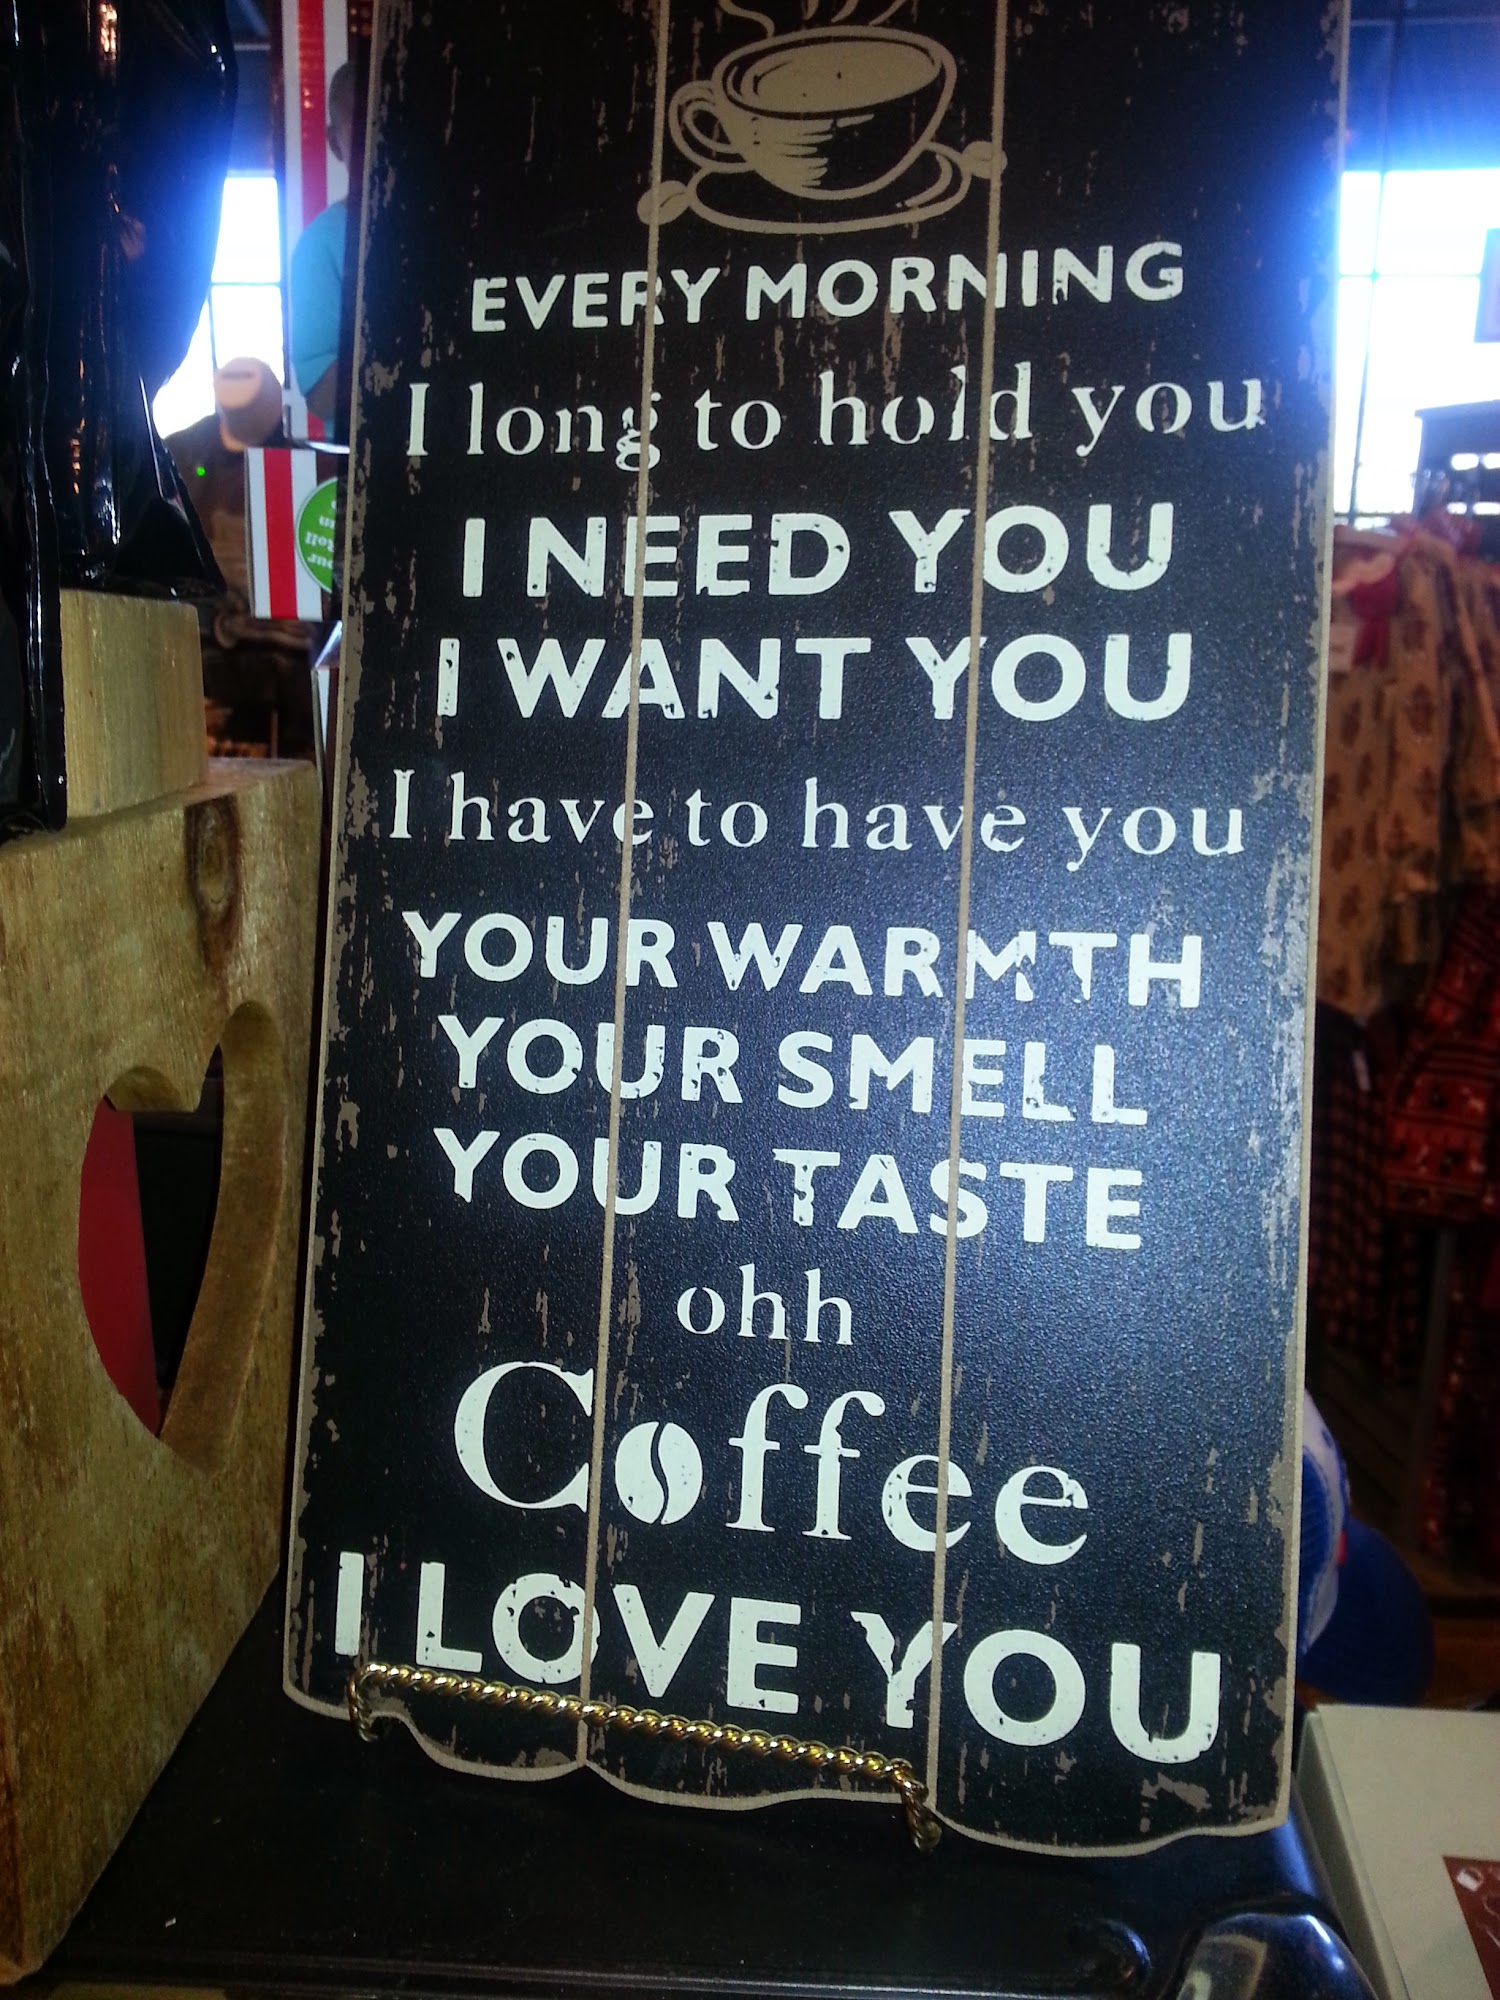 EVERY MORNING
I long to hold you
I NEED YOU
I WANT YOU
I have to have you
YOUR WARMTH
YOUR SMELL
YOUR TASTE
ohh
Coffee
I LOVE YOU